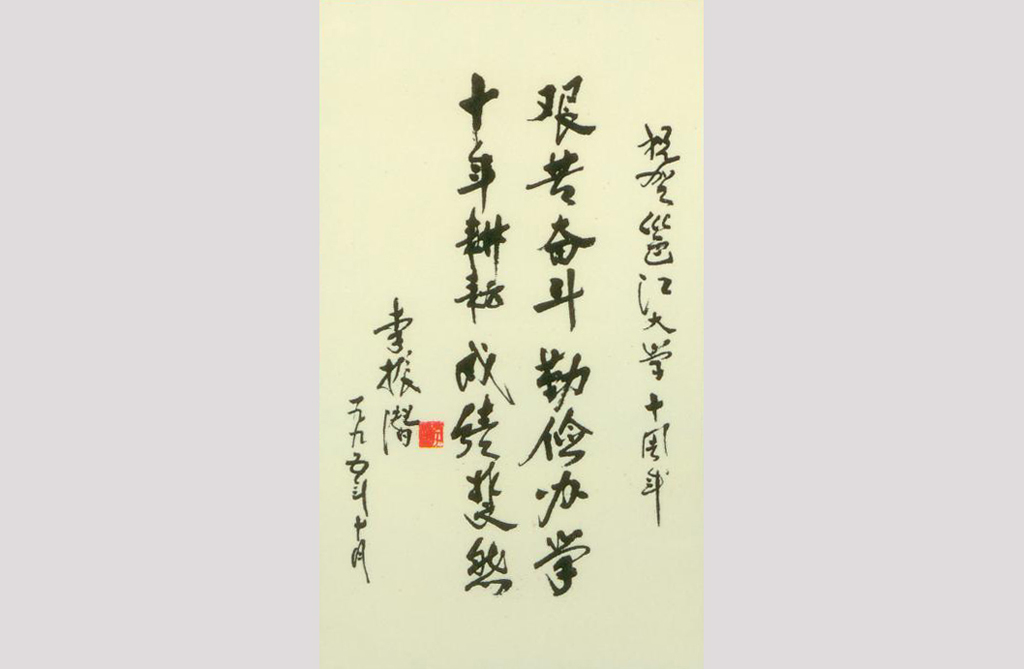 祝贺邕江大学十周年
艰苦奋斗勤俭办学
十年耕耘成绩斐然
李振潜
一九九五年十月